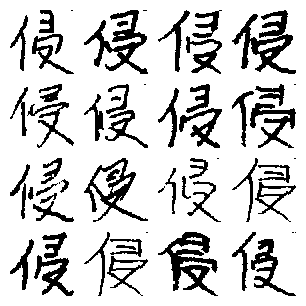 侵侵侵侵
侵侵侵侵
侵侵侵侵
侵侵侵侵